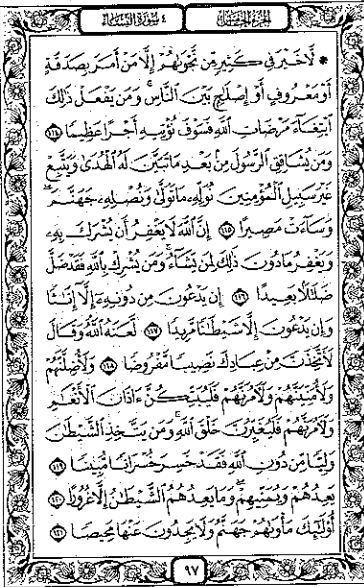 الجزء الخامس ٤ سورة النساء
* لَّا خَيْرَ فِي كَثِيرٍ مِّن نَّجْوَىٰهُمْ إِلَّا مَنْ أَمَرَ بِصَدَقَةٍ
أَوْ مَعْرُوفٍ أَوْ إِصْلَٰحٍ بَيْنَ النَّاسِ ۚ وَمَن يَفْعَلْ ذَٰلِكَ
ابْتِغَآءَ مَرْضَاتِ اللَّهِ فَسَوْفَ نُؤْتِيهِ أَجْرًا عَظِيمًا ١١٤
وَمَن يُشَاقِقِ الرَّسُولَ مِنۢ بَعْدِ مَا تَبَيَّنَ لَهُ الْهُدَىٰ وَيَتَّبِعْ
غَيْرَ سَبِيلِ الْمُؤْمِنِينَ نُوَلِّهِۦ مَا تَوَلَّىٰ وَنُصْلِهِۦ جَهَنَّمَ ۖ
وَسَآءَتْ مَصِيرًا ١١٥ إِنَّ اللَّهَ لَا يَغْفِرُ أَن يُشْرَكَ بِهِۦ
وَيَغْفِرُ مَا دُونَ ذَٰلِكَ لِمَن يَشَآءُ ۚ وَمَن يُشْرِكْ بِاللَّهِ فَقَدْ ضَلَّ
ضَلَٰلًۢا بَعِيدًا ١١٦ إِن يَدْعُونَ مِن دُونِهِۦٓ إِلَّآ إِنَٰثًا
وَإِن يَدْعُونَ إِلَّا شَيْطَٰنًا مَّرِيدًا ١١٧ لَّعَنَهُ اللَّهُ ۘ وَقَالَ
لَأَتَّخِذَنَّ مِنْ عِبَادِكَ نَصِيبًا مَّفْرُوضًا ١١٨ وَلَأُضِلَّنَّهُمْ
وَلَأُمَنِّيَنَّهُمْ وَلَءَامُرَنَّهُمْ فَلَيُبَتِّكُنَّ ءَاذَانَ الْأَنْعَٰمِ
وَلَءَامُرَنَّهُمْ فَلَيُغَيِّرُنَّ خَلْقَ اللَّهِ ۚ وَمَن يَتَّخِذِ الشَّيْطَٰنَ
وَلِيًّا مِّن دُونِ اللَّهِ فَقَدْ خَسِرَ خُسْرَانًا مُّبِينًا ١١٩
يَعِدُهُمْ وَيُمَنِّيهِمْ ۖ وَمَا يَعِدُهُمُ الشَّيْطَٰنُ إِلَّا غُرُورًا ١٢٠
أُو۟لَٰٓئِكَ مَأْوَىٰهُمْ جَهَنَّمُ وَلَا يَجِدُونَ عَنْهَا مَحِيصًا ١٢١
٩٧